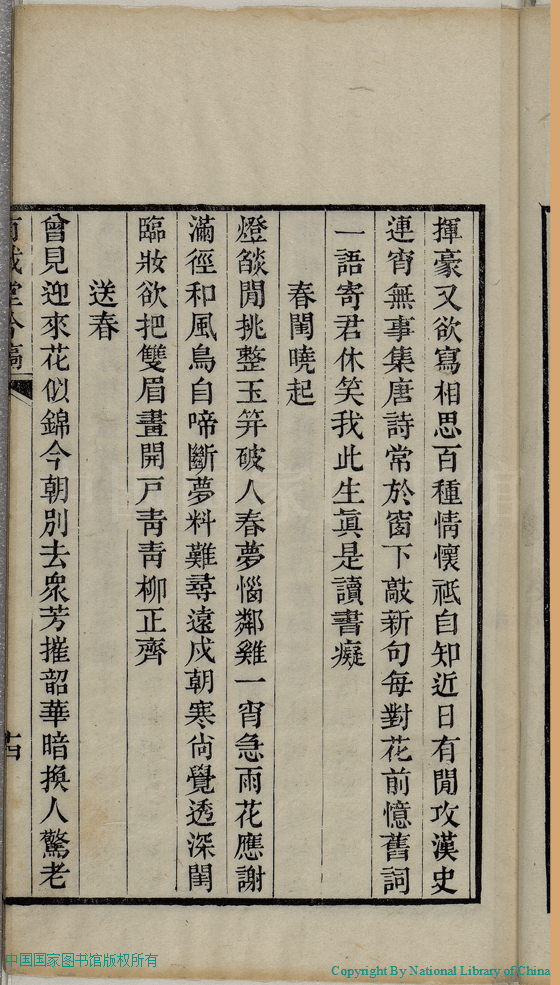 揮豪又欲寫相思百種情懷祗自知近日有閒攻漢史
連宵無事集唐詩常於窗下敲新句每對花前憶舊詞
一語寄君休笑我此生眞是讀書癡
春閨曉起
燈燄閒挑整玉笄破人春夢惱鄰雞一宵急雨花應謝
滿徑和風鳥自啼斷夢料難尋遠戍朝寒尙覺透深閨
臨妝欲把雙眉畫開戸靑靑柳正齊
送春
曾見迎來花似錦今朝別去衆芳摧韶華暗換人驚老
中国国家图书馆版权所有
Copyright By National Library of China